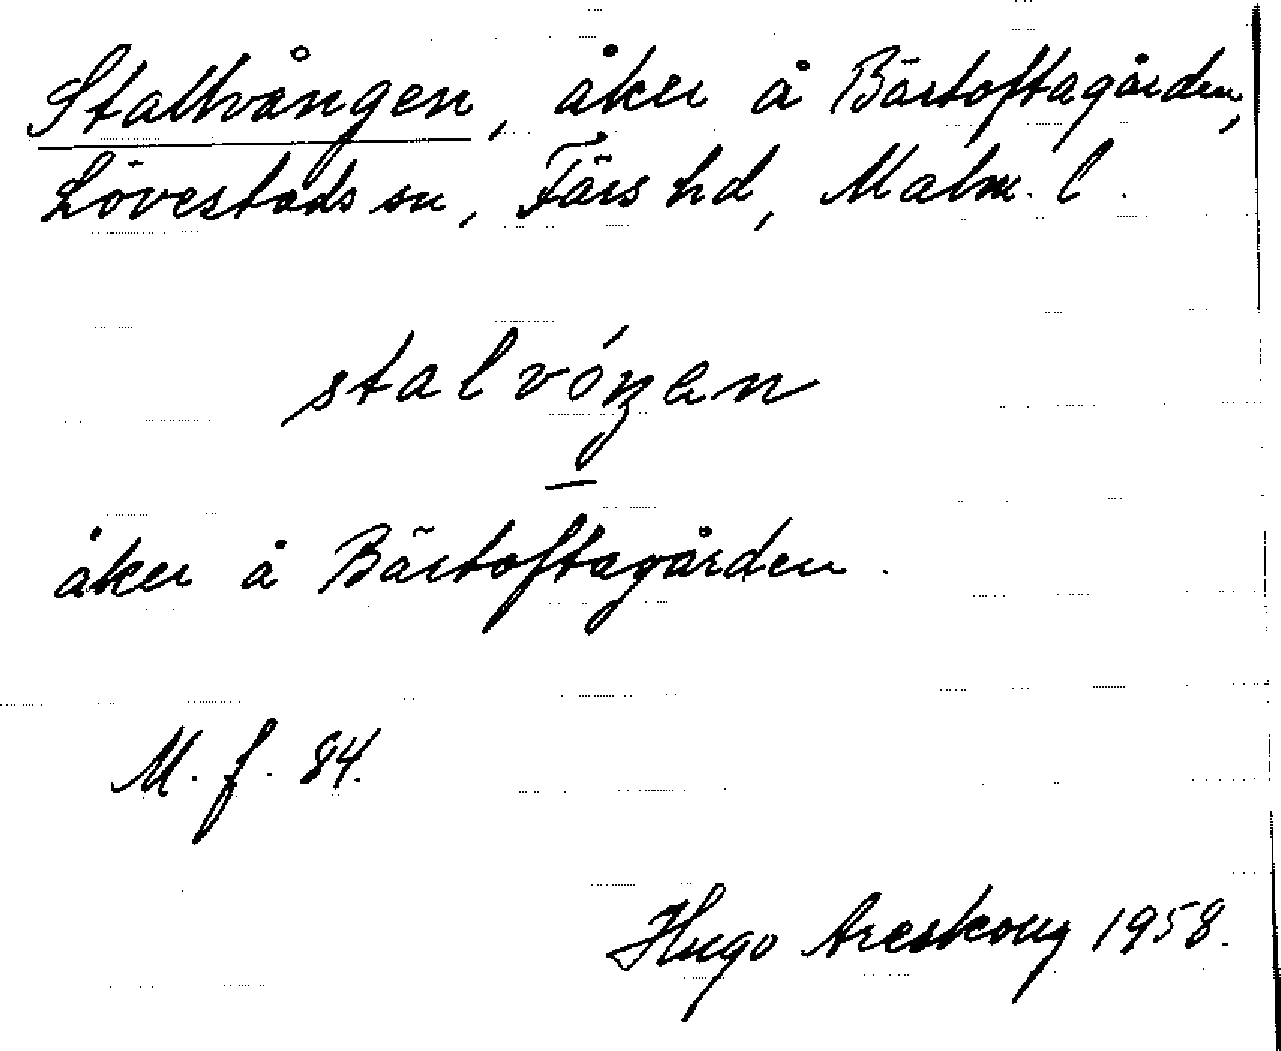 Stallvången, åker å Bärtoftagården,
Lövestads sn, Färs hd, Malm. l.
stalvóŋan
åker å Bärtoftagården.
M. f. 84.
Hugo Areskoug 1958.